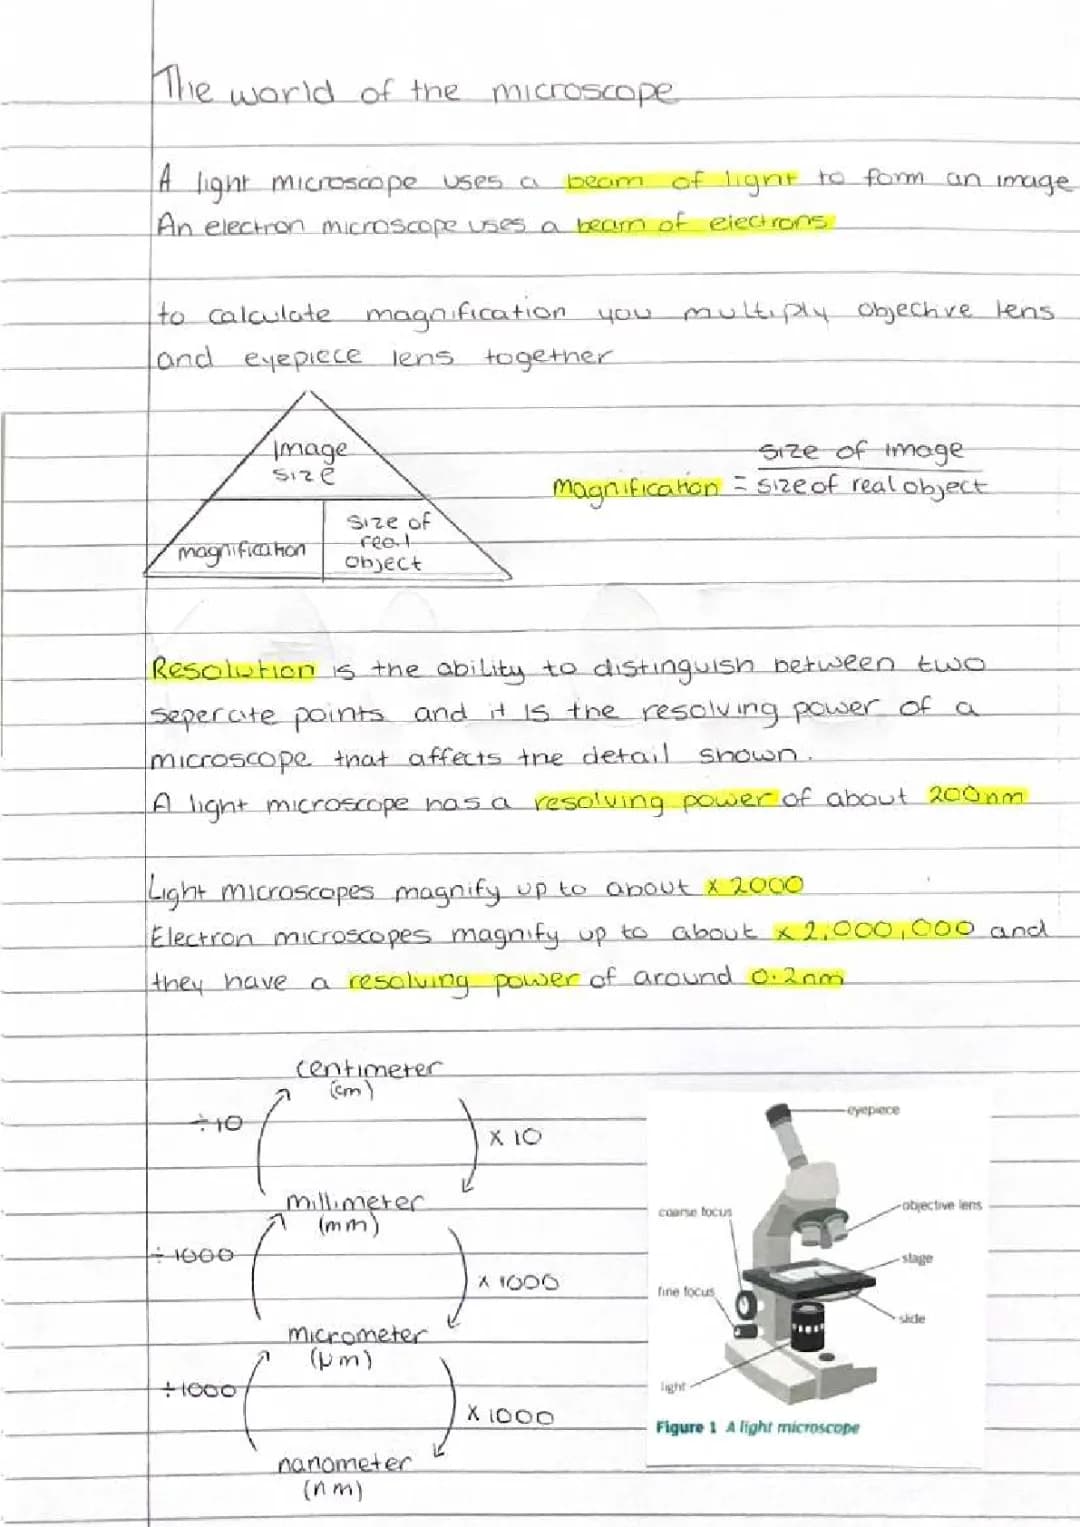 The world of the microscope
A light microscope uses a beam of light to form an image
An electron microscope uses a beam of electrons
to calculate magnification you multiply objective lens
and eyepiece lens together
Image
size
magnification
size of
real
object
size of image
magnification = size of real object
Resolution is the ability to distinguish between two
seperate points and it is the resolving power of a
microscope that affects the detail shown.
A light microscope has a resolving power of about 200nm
Light microscopes magnify up to about x 2000
Electron microscopes magnify up to about x 2,000,000 and
they have a resolving power of around 0.2nm
centimeter
(cm)
÷10
x 10
millimeter
(mm)
÷1000
x 1000
micrometer
(µm)
÷1000
x 1000
nanometer
(nm)
eyepiece
coarse focus
objective lens
stage
fine focus
slide
light
Figure 1 A light microscope